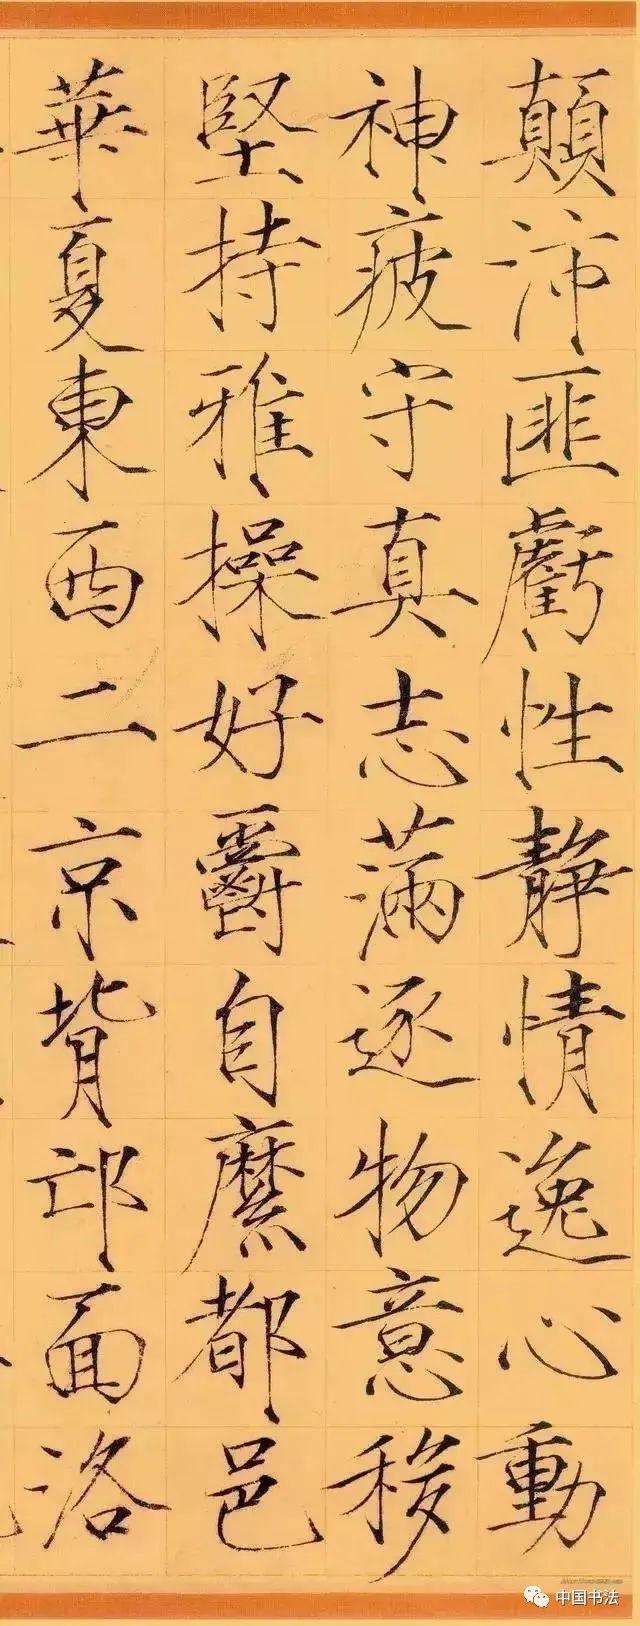 顛沛匪虧性靜情逸心動
神疲守真志滿逐物意移
堅持雅操好爵自縻都邑
華夏東西二京背邙面洛
中国书法